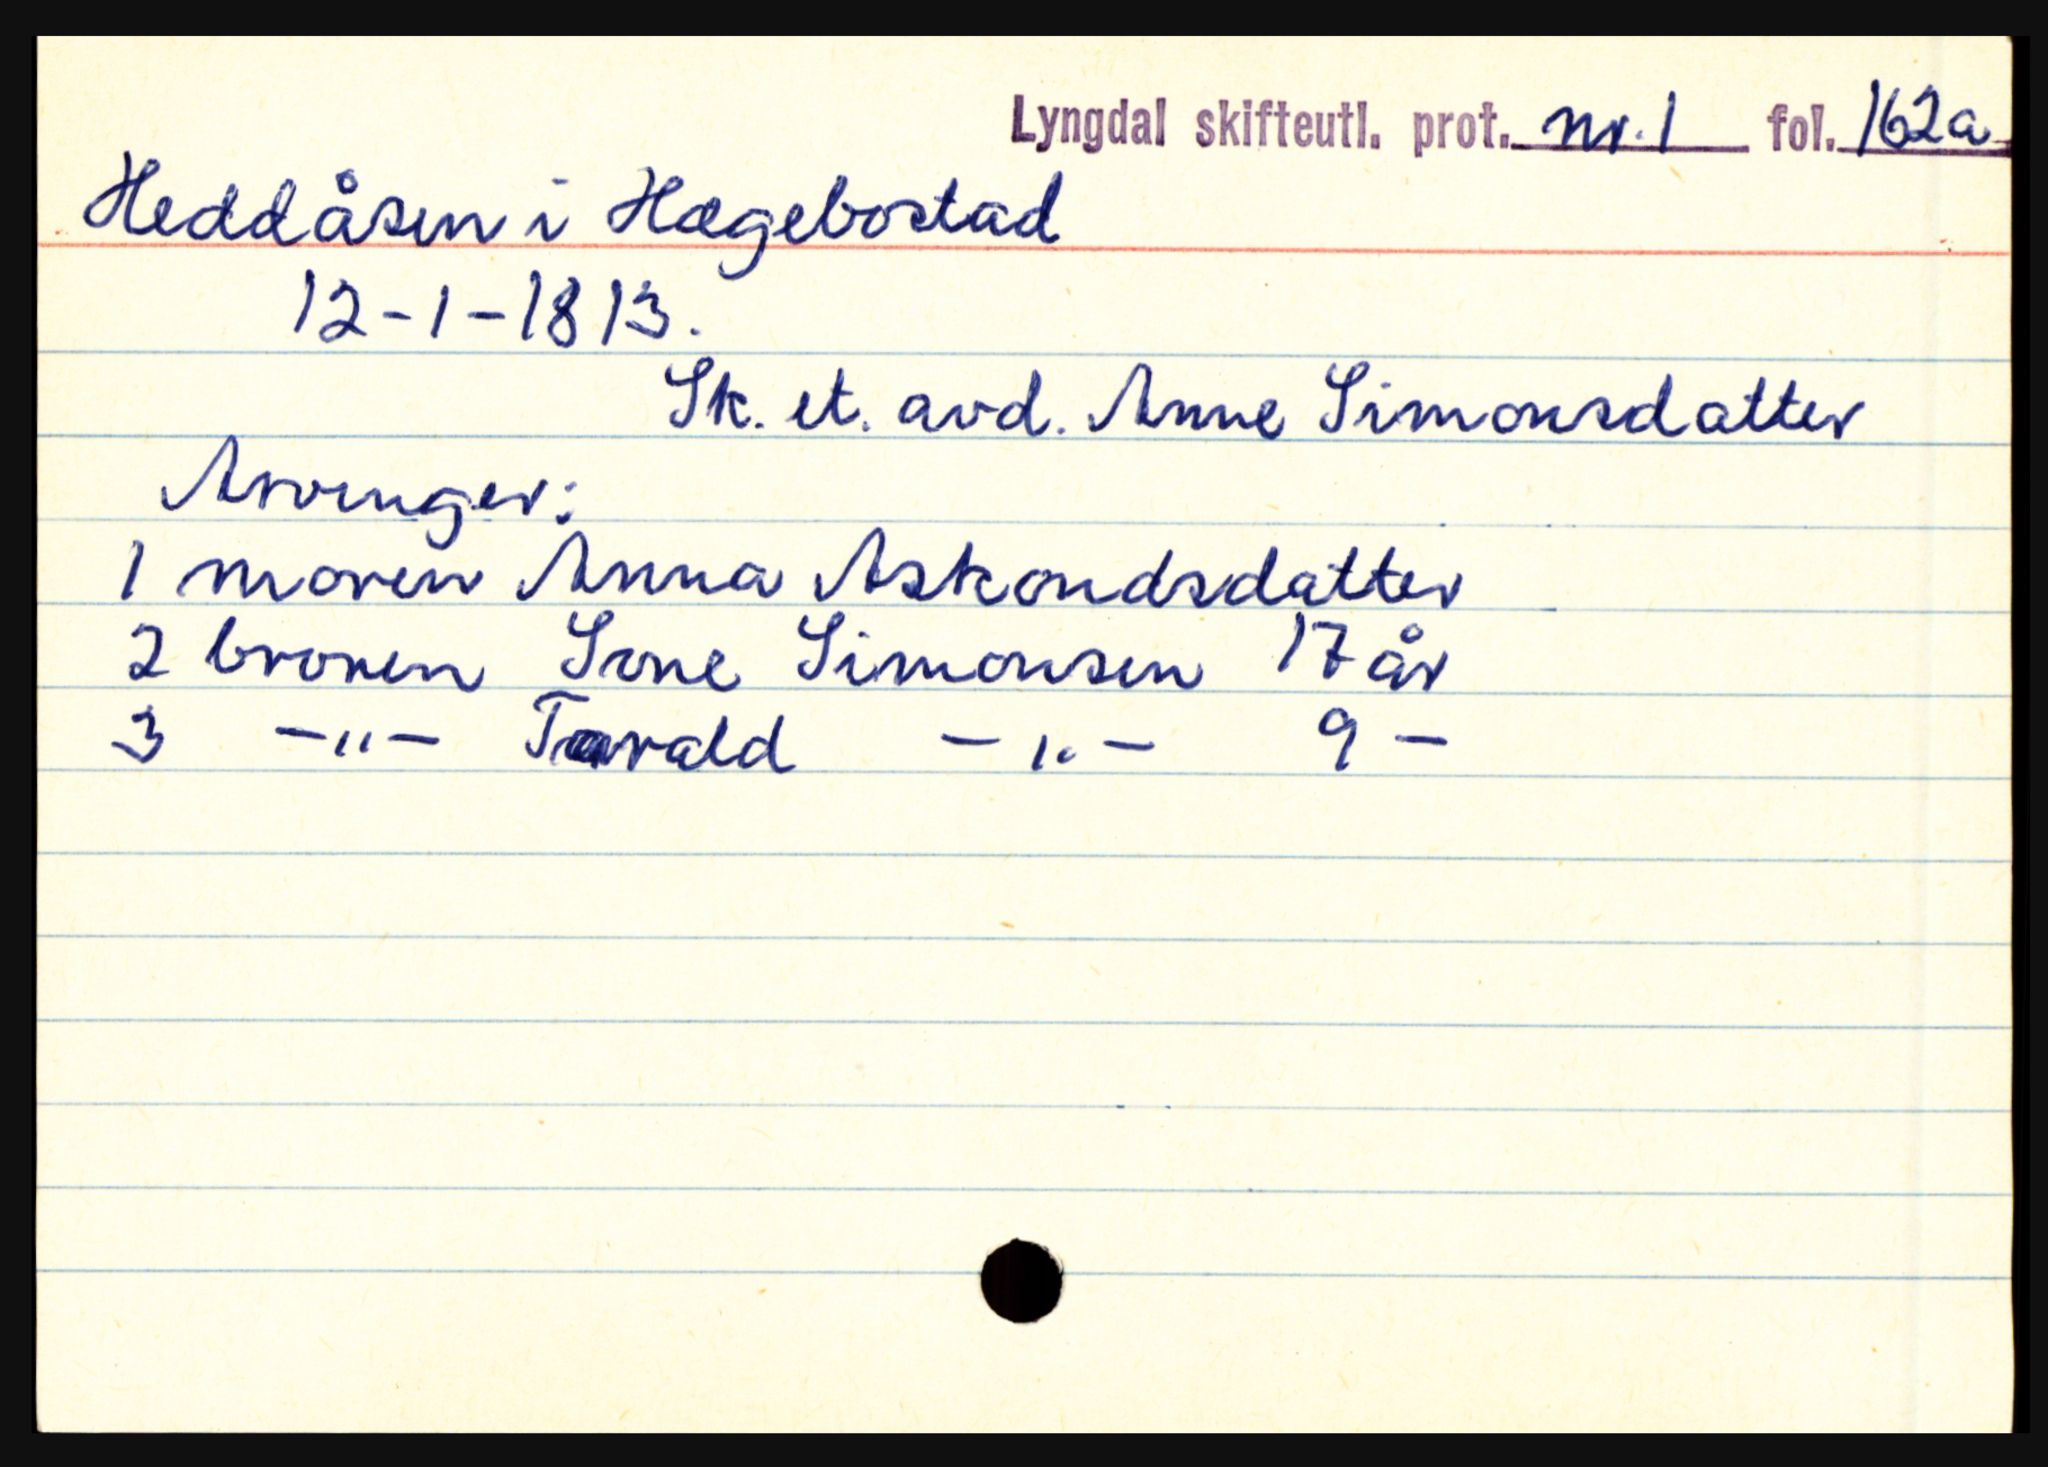 Lyngdal skifteutl. prot. nr. 1 fol. 162a
Heddåsen i Hægebostad
12-1-1813.
Sk. et. avd. Anne Simonsdatter
Arvinger:
1 moren Anna Askondsdatter
2 broren Sone Simonsen 17 år
3 -"- Tarald -"- 9 -